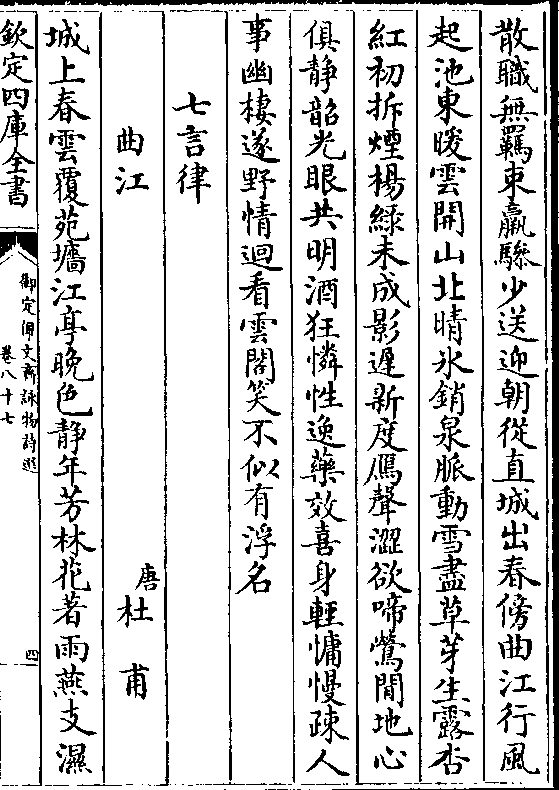 散職無羈束羸驂少送迎朝從直城出春傍曲江行風
起池東暖雲開山北晴氷銷泉脈動雪盡草芽生露杏
紅初拆煙楊綠未成影遲新度鴈聲澀欲啼鶯閒地心
俱静韶光眼共明酒狂憐性逸藥效喜身輕慵慢疎人
事幽棲遂野情迴看雲閣笑不似有浮名
七言律
曲江
唐
杜甫
城上春雲覆苑墻江亭晚色静年芳林花著雨燕支濕
欽定四庫全書
御定佩文齋詠物詩選
卷八十七
四